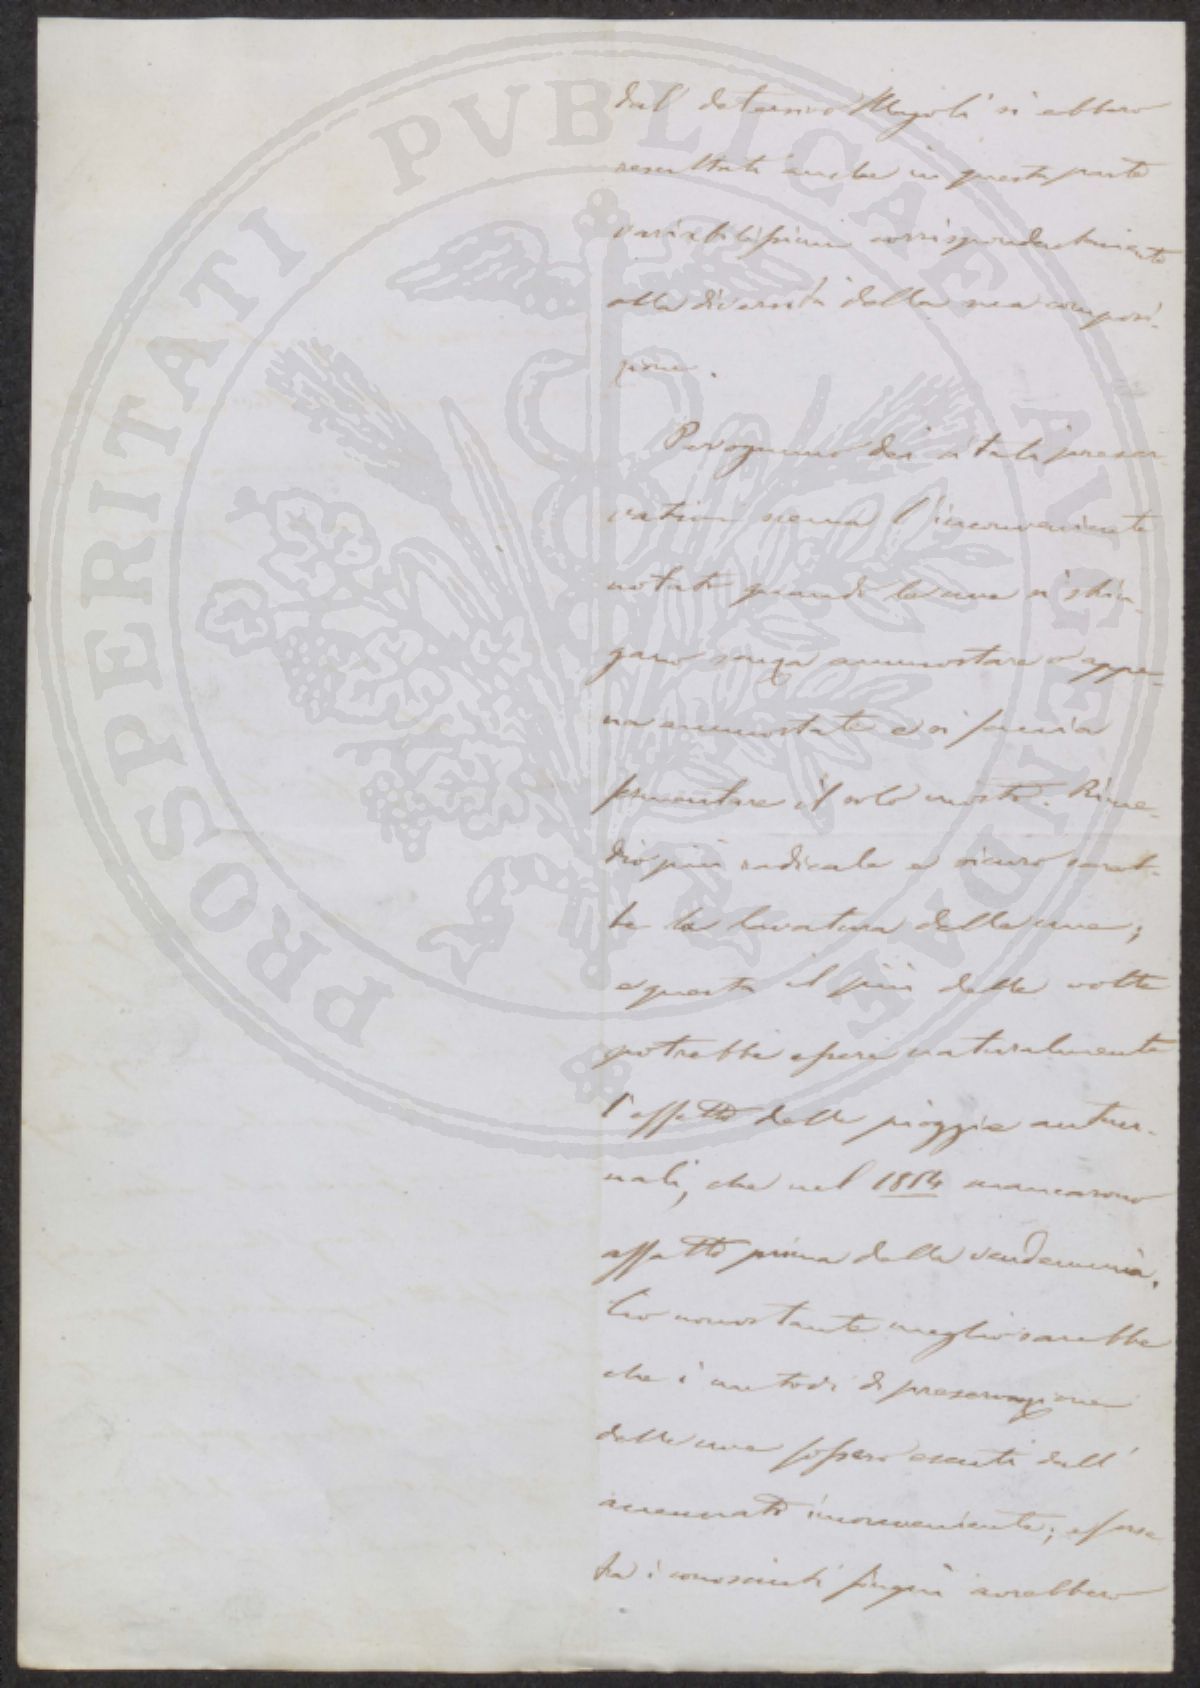 PROSPERITATI PVBLICAE AVGENDAE
dal detersivo Majoli si ebbero
resultati anche in questa parte
variabilissimi corrispondentemente
alla diversità della sua composi-
zione.
Per ognuno dei citati preser-
vativi scema l'inconveniente
notato quando le uve si strin-
gano senza ammostare o appe-
na ammostate e si faccia
fermentare il solo mosto. Rime-
dio più radicale e sicuro sareb-
be la lavatura delle uve;
e questa il più delle volte
potrebbe essere naturalmente
l'effetto delle pioggie autun-
nali, che nel 1854 mancarono
affatto prima della vendemmia.
Ciò nonostante meglio sarebbe
che i metodi di preservazione
delle uve fossero esenti dall'
accennato inconveniente; e forse
tra i conosciuti fin qui avrebbero